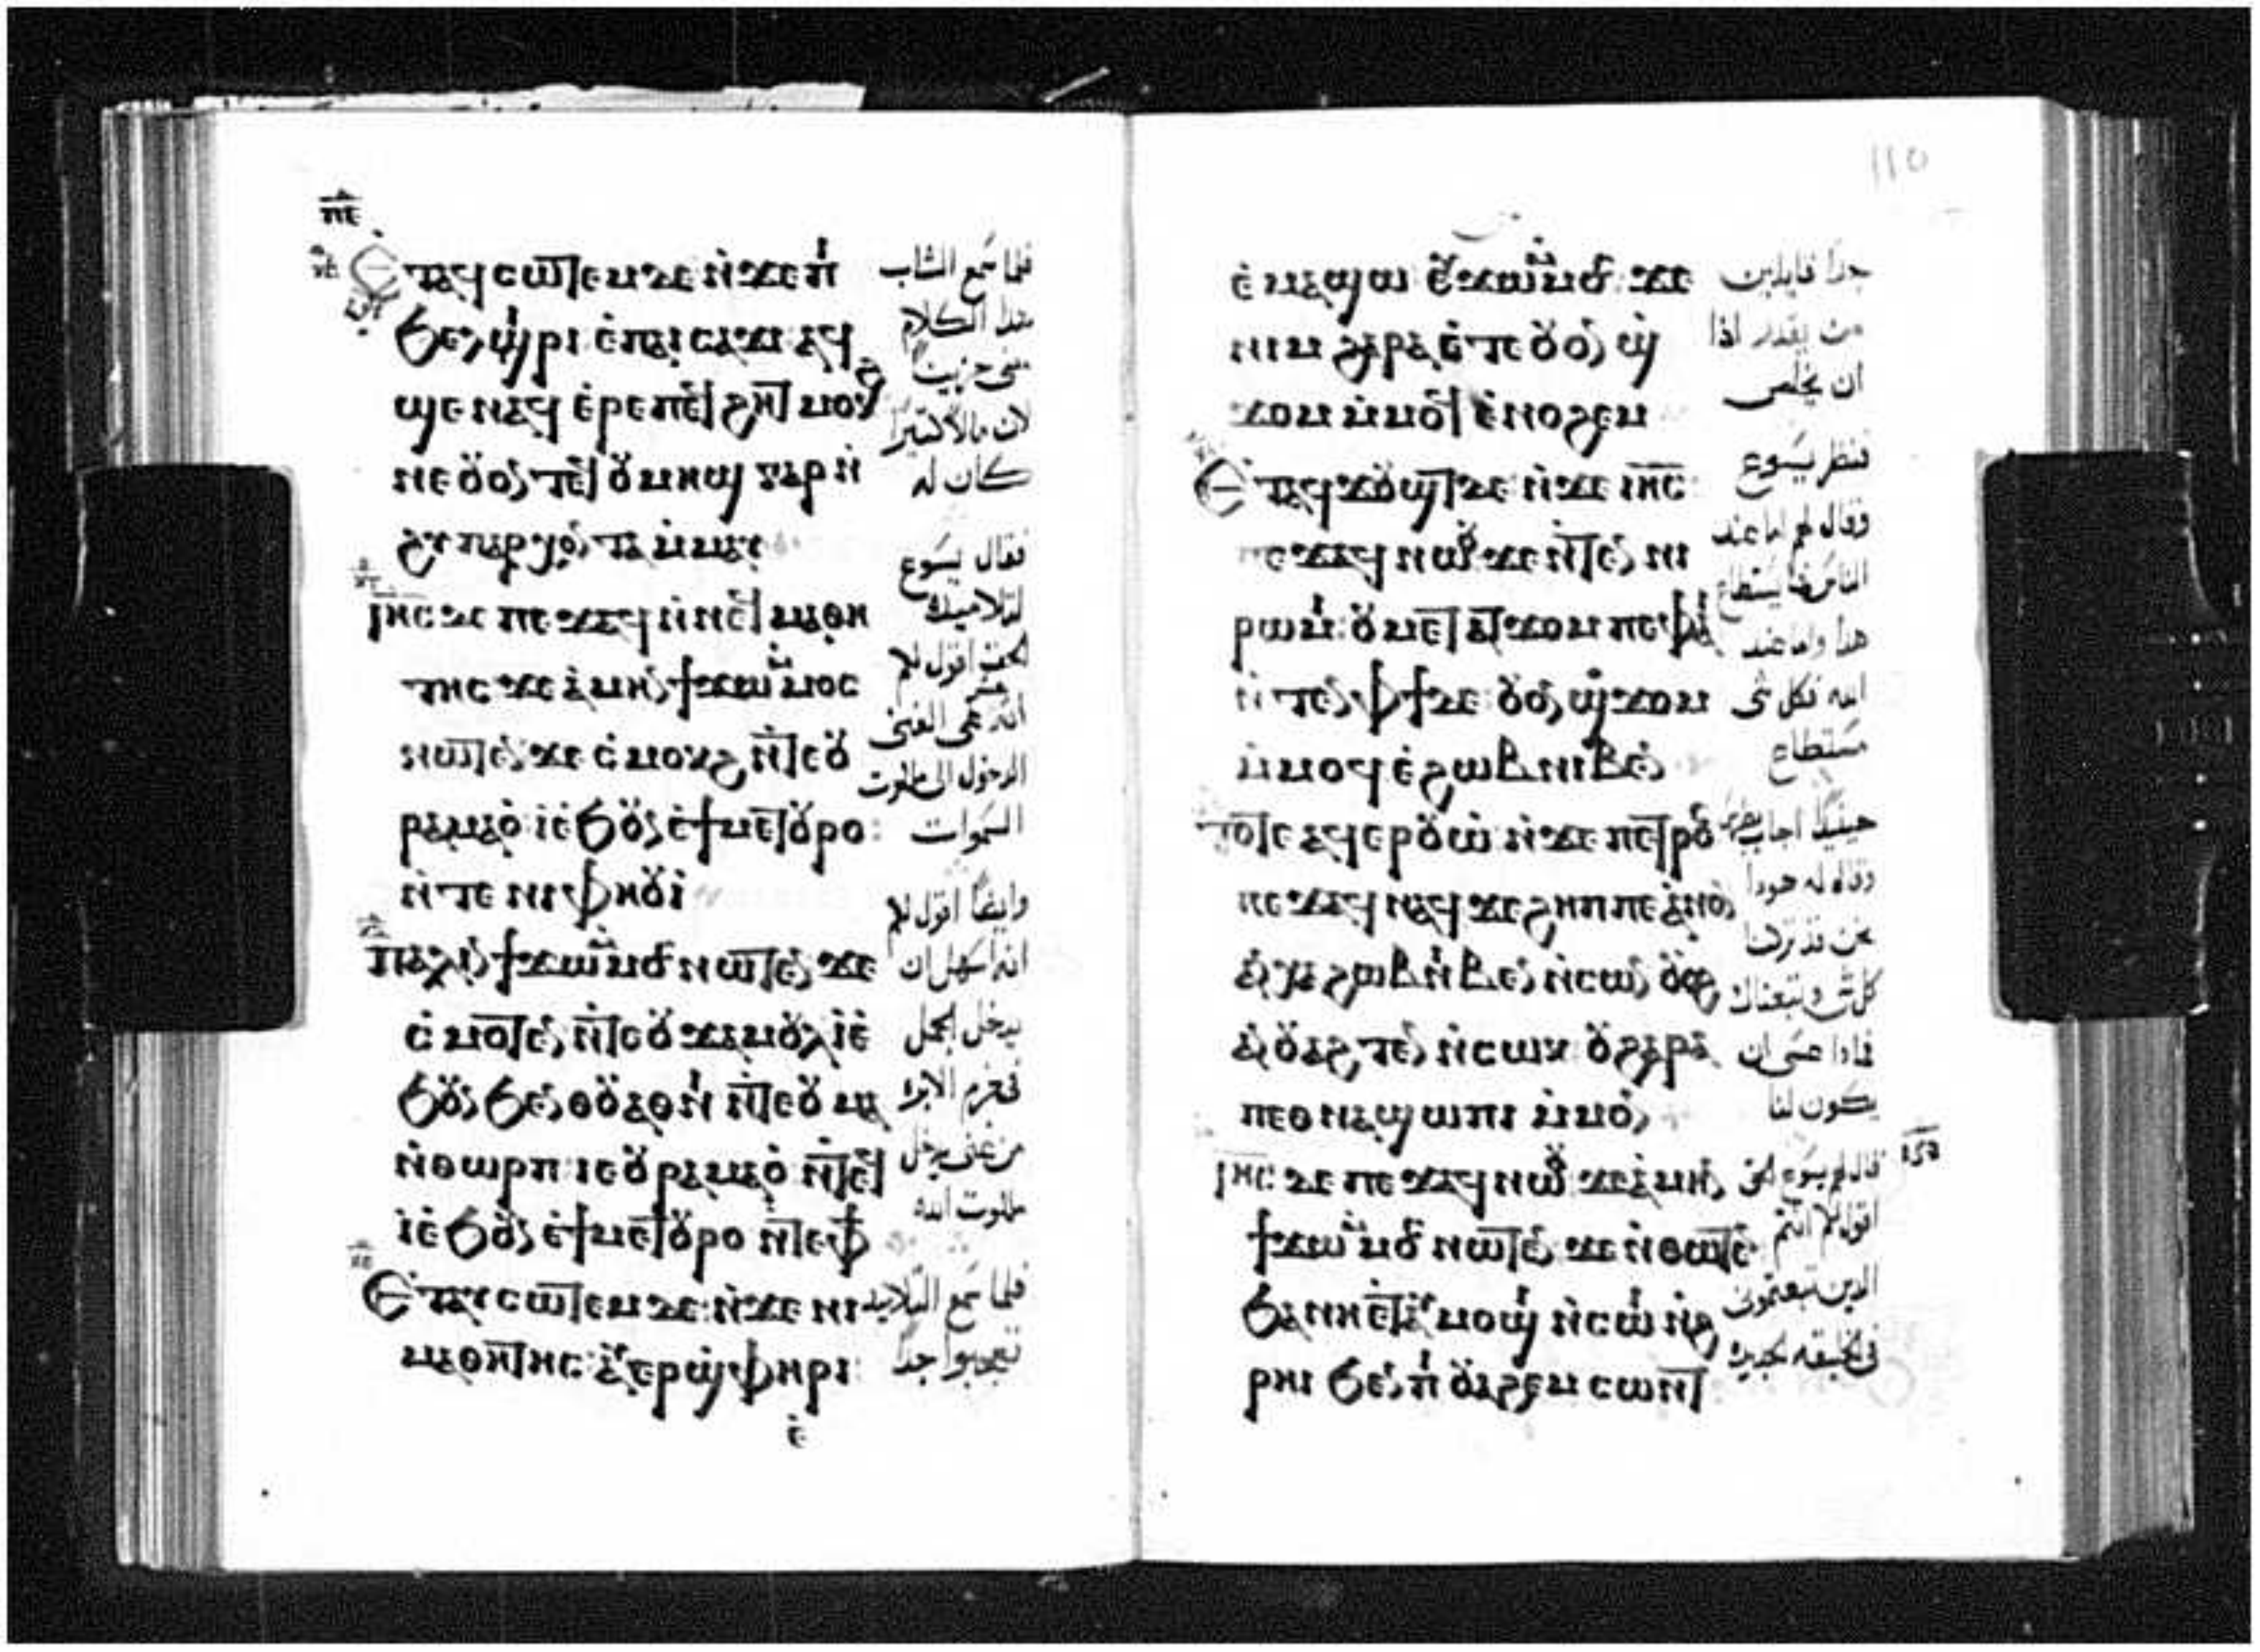 ⲡⲉ
Ⲉⲧⲁϥⲥⲱⲧⲉⲙ ⲇⲉ ⲛ̀ϫⲉ ⲡⲓ
ϧⲉⲗϣⲓⲣⲓ ⲉ̀ⲡⲁⲓⲥⲁϫⲓ ⲁϥ
ϣⲉ ⲛⲁϥ ⲉ̀ⲣⲉ ⲡⲉϥϩⲏⲧ ⲙⲟⲕϩ
ⲛⲉ ⲟⲩⲟⲛⲧⲉϥ ⲟⲩⲙⲏϣ ⲅⲁⲣ ⲛ̀
ϩⲩⲡⲁⲣⲭⲟⲛⲧⲁ ⲙ̀ⲙⲁⲩ
Ⲓⲏ̅ⲥ̅ ⲇⲉ ⲡⲉϫⲁϥ ⲛ̀ⲛⲉϥⲙⲁⲑⲏ
ⲧⲏⲥ ϫⲉ ⲁ̀ⲙⲏⲛ ϯϫⲱ ⲙ̀ⲙⲟⲥ
ⲛⲱⲧⲉⲛ ϫⲉ ⲥ̀ⲙⲟⲕϩ ⲛ̀ⲧⲉ ⲟⲩ
ⲣⲁⲙⲁⲟ̀ ⲓ̀ ⲉ̀ϧⲟⲩⲛ ⲉ̀ϯⲙⲉⲧⲟⲩⲣⲟ
ⲛ̀ⲧⲉ ⲛⲓⲫⲏⲟⲩⲓ̀
Ⲡⲁⲗⲓⲛ ϯϫⲱ ⲙ̀ⲙⲟⲥ ⲛⲱⲧⲉⲛ ϫⲉ
ⲥ̀ⲙⲟⲧⲉⲛ ⲛ̀ⲧⲉ ⲟⲩϫⲁⲙⲟⲩⲗ ⲓ̀ ⲉ̀
ϧⲟⲩⲛ ϧⲉⲛ ⲑⲟⲩⲁⲑⲙⲓ ⲛ̀ⲧⲉ ⲟⲩⲙⲁ
ⲛ̀ⲑⲱⲣⲡ ⲓⲉ ⲟⲩⲣⲁⲙⲁⲟ̀ ⲛ̀ⲧⲉϥ
ⲓ̀ ⲉ̀ϧⲟⲩⲛ ⲉ̀ϯⲙⲉⲧⲟⲩⲣⲟ ⲛ̀ⲧⲉ ⲫϯ
Ⲉⲧⲁⲩⲥⲱⲧⲉⲙ ⲇⲉ ⲛ̀ϫⲉ ⲛⲓ
ⲙⲁⲑⲏⲧⲏⲥ ⲁⲩⲉⲣϣⲫⲏⲣⲓ
ⲉ̀
فلما سمع الشاب
هذا الكلام
مضى حزيناً
لان مالاً كثيراً
كان له
فقال يسوع
لتلاميذه
الحق اقول لكم
انه عسر على الغنى
الدخول الى ملكوت
السموات
وايضاً اقول لكم
انه اسهل ان
يدخل الجمل
فى خرم الابره
من غنى يدخل
ملكوت الله
فلما سمع التلاميذ
تعجبوا جداً
110
ⲉ̀ⲙⲁϣⲱ ⲉⲩϫⲱ ⲙ̀ⲙⲟⲥ ϫⲉ
ⲛⲓⲙ ϩⲁⲣⲁ ⲉ̀ⲧⲉ ⲟⲩⲟⲛ ϣ̀
ϫⲟⲙ ⲙ̀ⲙⲟϥ ⲉ̀ⲛⲟϩⲉⲙ
Ⲉⲧⲁϥϫⲟⲩϣⲧ ⲇⲉ ⲛ̀ϫⲉ ⲓⲏ̅ⲥ̅
ⲡⲉϫⲁϥ ⲛⲱⲟⲩ ϫⲉ ⲛ̀ⲧⲉⲛ ⲛⲓ
ⲣⲱⲙⲓ ⲟⲩⲙⲉⲧⲁⲧϫⲟⲙ ⲡⲉ ⲫⲁⲓ
ⲛ̀ⲧⲉⲛ ⲫϯ ⲇⲉ ⲟⲩⲟⲛ ϣϫⲟⲙ
ⲙ̀ⲙⲟϥ ⲉ̀ϩⲱⲃ ⲛⲓⲃⲉⲛ
Ⲧⲟⲧⲉ ⲁϥⲉⲣⲟⲩⲱ̀ ⲛ̀ϫⲉ ⲡⲉⲧⲣⲟⲥ
ⲡⲉϫⲁϥ ⲛⲁϥ ϫⲉ ϩⲏⲡⲡⲉ ⲁ̀ⲛⲟⲛ
ⲁⲛⲭⲁ ϩⲱⲃ ⲛⲓⲃⲉⲛ ⲛ̀ⲥⲱⲛ ⲟⲩⲟϩ
ⲁⲛⲟⲩⲁϩⲧⲉⲛ ⲛ̀ⲥⲱⲕ ⲟⲩ ϩⲁⲣⲁ
ⲡⲉⲑⲛⲁϣⲱⲡⲓ ⲙ̀ⲙⲟⲛ
Ⲓⲏ̅ⲥ̅ ⲇⲉ ⲡⲉϫⲁϥ ⲛⲱⲟⲩ ϫⲉ ⲁ̀ⲙⲏⲛ
ϯϫⲱ ⲙ̀ⲙⲟⲥ ⲛⲱⲧⲉⲛ ϫⲉ ⲛ̀ⲑⲱⲧⲉⲛ
ϧⲁ ⲛⲏⲉⲧⲁⲩⲙⲟϣⲓ ⲛ̀ⲥⲱⲓ ⲛ̀ϩ
ⲣⲏⲓ ϧⲉⲛ ⲡⲓⲟⲩⲁϩⲉⲙ ⲥⲱⲛⲧ
جداً قايلين
من يقدر اذا
ان يخلص
فنظر يسوع
وقال لهم اما عند
الناس فما يستطاع
هذا واما عند
الله فكل شى
مستطاع
حينيذ اجاب بطرس
وقال له هوذا
نحن قد تركنا
كل شى وتبعناك
فماذا عسى ان
يكون لنا
قال لهم يسوع الحق
اقول لكم انتم
الذين تبعتمونى
فى الخليقه الجديده